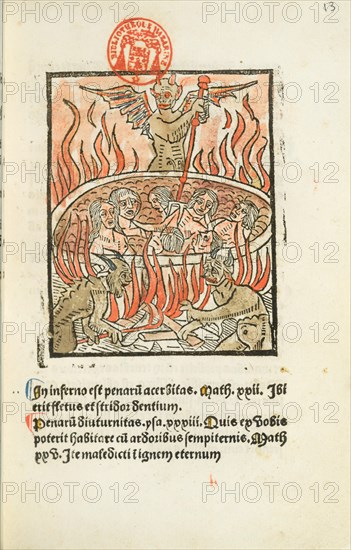 13
BIBLIOTHECA
PHOTO12
In inferno est penarũ acerbitas. Math. xxii. Ibi
erit fletus et stridor dentium.
Penarũ diuturnitas. psa. xxxiii. Quis ex vobis
poterit habitare cũ ardoribus sempiternis. Math
xxv. Ite maledicti ĩ ignem eternum